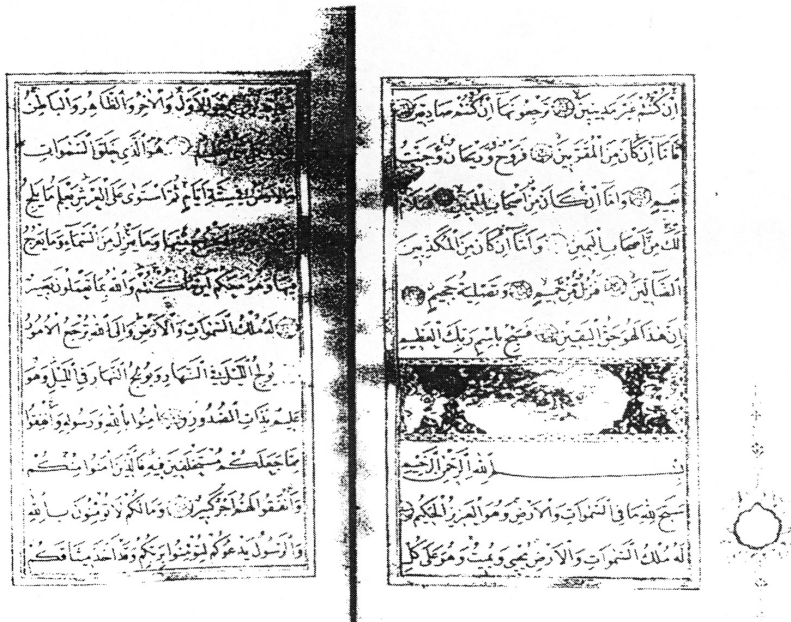 ان كنتم غير مدينين ترجعونها ان كنتم صادقين
فاما ان كان من المقربين فروح وريحان وجنت
نعيم واما ان كان من اصحاب اليمين فسلام
لك من اصحاب اليمين واما ان كان من المكذبين
الضالين فنزل من حميم وتصلية جحيم
ان هذا لهو حق اليقين فسبح باسم ربك العظيم
بسم الله الرحمن الرحيم
سبح لله ما في السموات والارض وهو العزيز الحكيم
له ملك السموات والارض يحيي ويميت وهو على كل
هو الاول والاخر والظاهر والباطن
هو الذي خلق السموات
والارض في ستة ايام ثم استوى على العرش يعلم ما يلج
يخرج منها وما ينزل من السماء وما يعرج
فيها وهو معكم اين ما كنتم والله بما تعملون بصير
له ملك السموات والارض والى الله ترجع الامور
يولج الليل في النهار ويولج النهار في الليل وهو
عليم بذات الصدور امنوا بالله ورسوله وانفقوا
مما جعلكم مستخلفين فيه فالذين امنوا منكم
وانفقوا لهم اجر كبير وما لكم لا تؤمنون بالله
والرسول يدعوكم لتؤمنوا بربكم وقد اخذ ميثاقكم